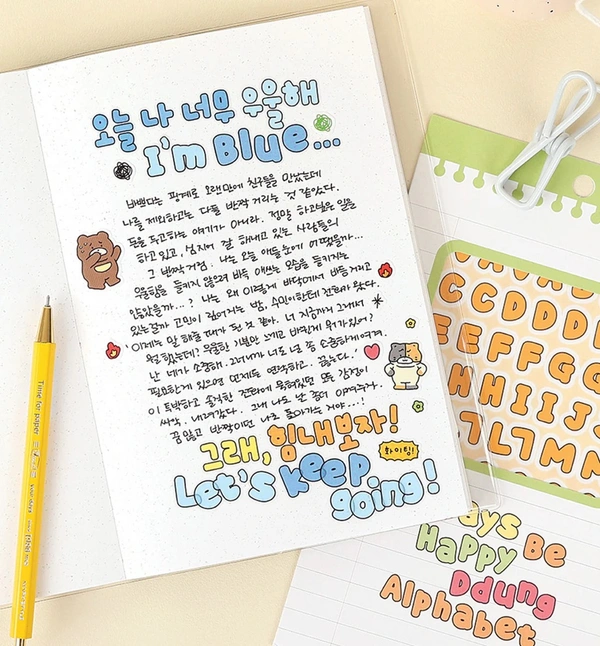 오늘 나 너무 우울해
I'm Blue...
바쁘다는 핑계로 오랜만에 친구들을 만났는데
나를 제외하고는 다들 반짝 거리는 것 같았다.
돈을 두고하는 얘기가 아니라. 정말 하고싶은 일을
하고 있고, 심지어 잘 해내고 있는 사람들의
그 반짝거림. 나는 오늘 애들 눈에 어땠을까...
우울함을 들키지 않으려 바득 애쓰는 모습을 들키지는
않았을까...? 나는 왜 이렇게 바닥에서 바들거리고
있는걸까 고민이 길어지는 밤, 수민이한테 전화가 왔다.
"이제는 말 해줄 때가 된 것 같아. 너 지금까지 그래서
뭘 했는데? 우울한 기분만 느끼고 바뀐게 뭐가있어?
난 네가 소중해. 그러니까 너도 널 좀 소중하게 여겨.
필요한게 있으면 언제든 연락하고. 끊는다."
이 투박하고 솔직한 전화에 뭉쳐있던 모든 감정이
싸악. 내려갔다. 그래 나도 난 좀 아껴주자.
꿈 많고 반짝이던 나로 돌아가는 거야...!
그래, 힘내보자!
화이팅!
Let's keep
going!
Time for paper
C D D D D
E E F F G G
H H I I J J
L M M N
ays Be
Happy
Ddung
Alphabet